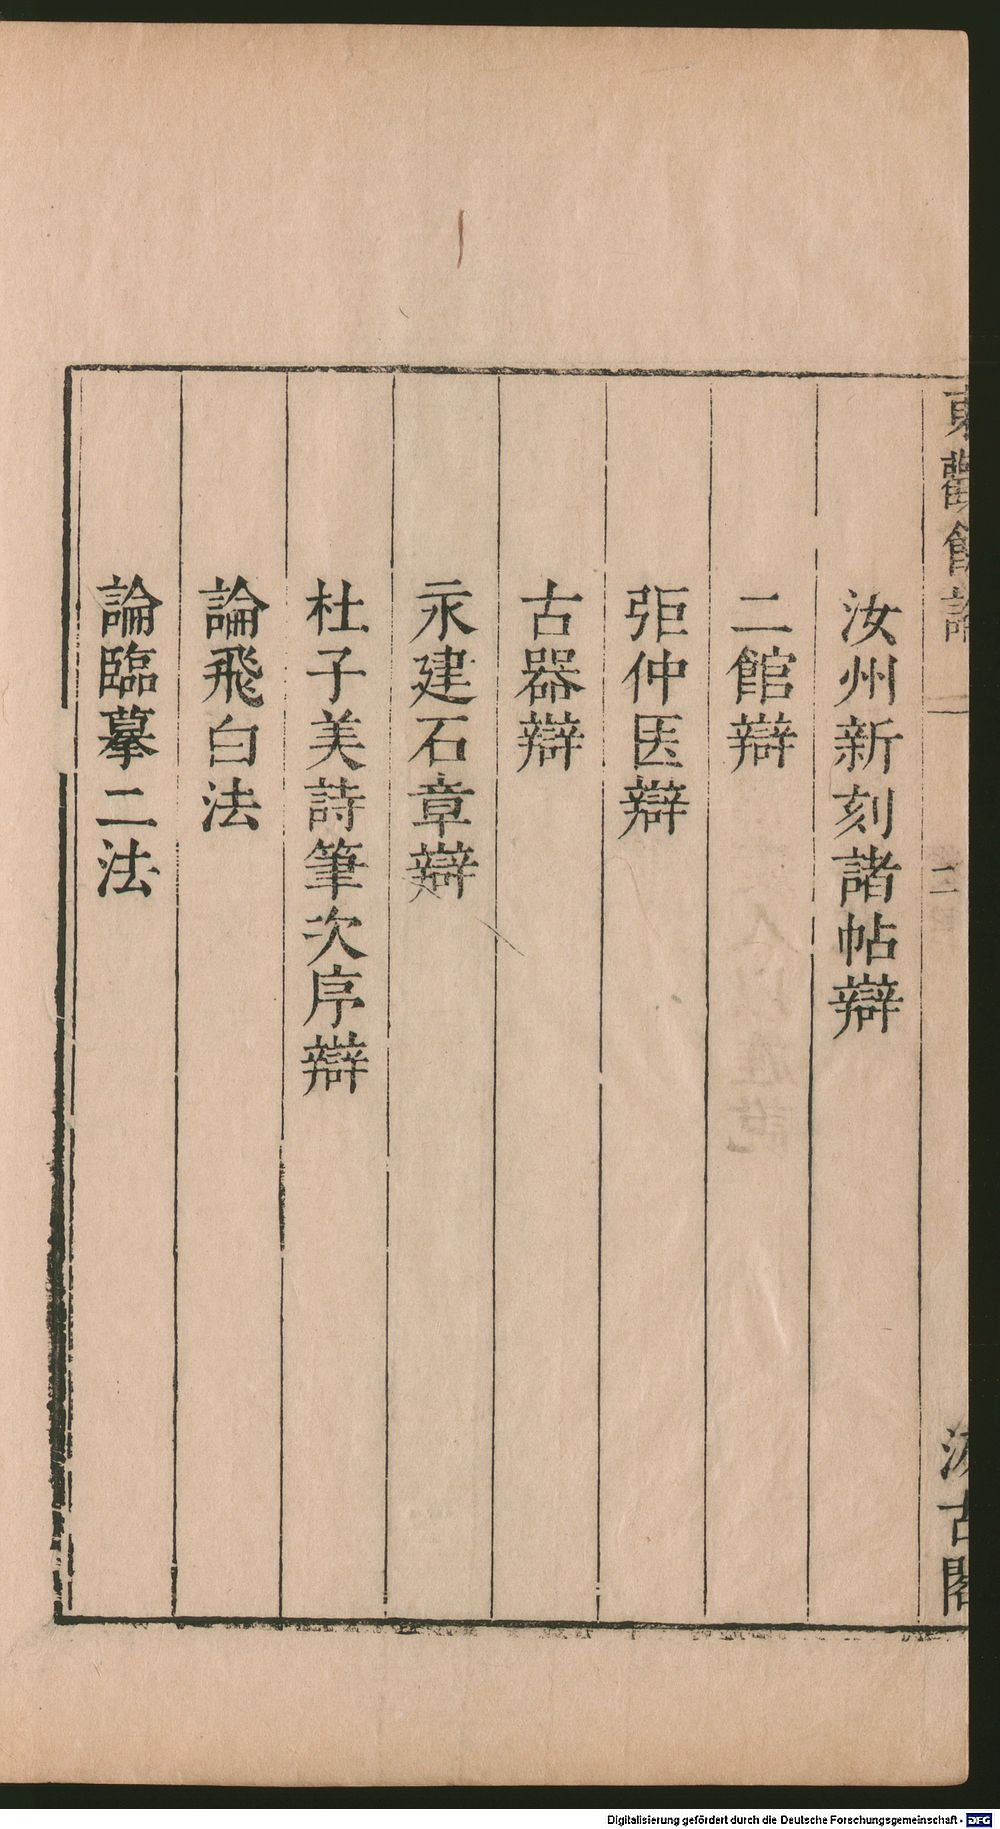 東觀餘論
一
二
汲古閣
汝州新刻諸帖辯
二館辯
弡仲医辯
古器辯
永建石章辯
杜子美詩筆次序辯
論飛白法
論臨摹二法
Digitalisierung gefördert durch die Deutsche Forschungsgemeinschaft - DFG